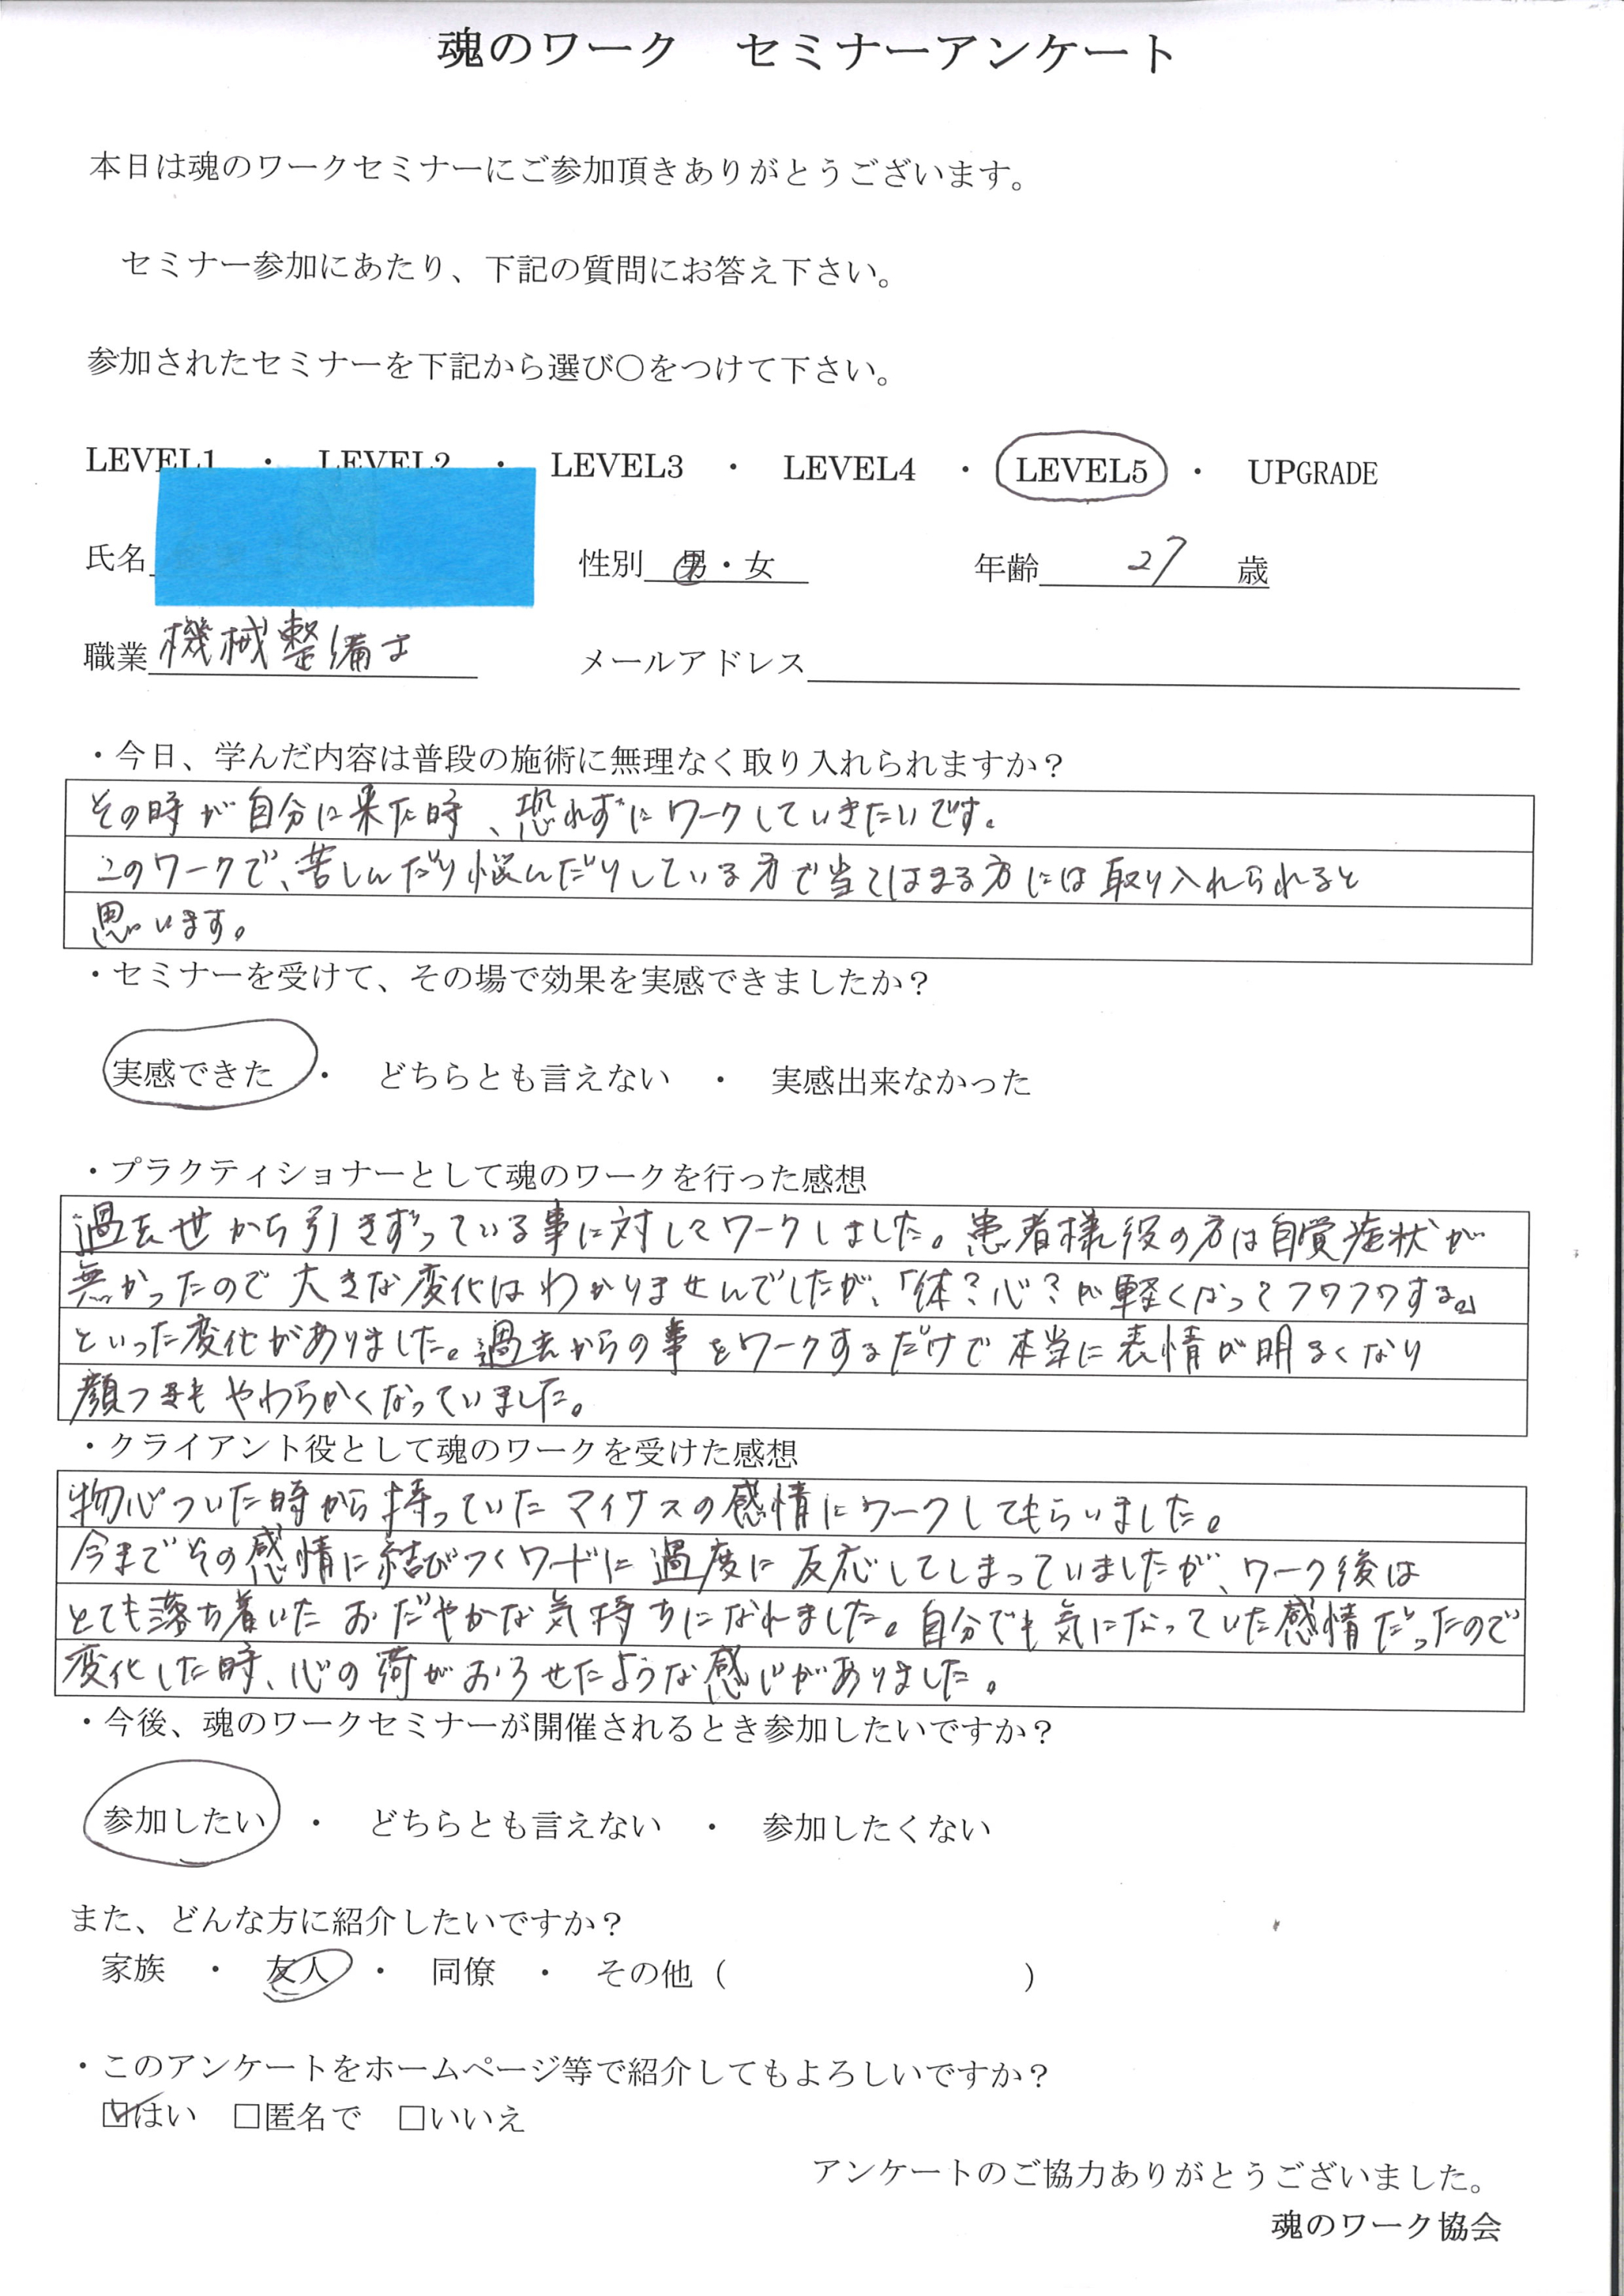 魂のワーク　セミナーアンケート
本日は魂のワークセミナーにご参加頂きありがとうございます。
セミナー参加にあたり、下記の質問にお答え下さい。
参加されたセミナーを下記から選び〇をつけて下さい。
LEVEL1 ・ LEVEL2 ・ LEVEL3 ・ LEVEL4 ・ LEVEL5 ・ UPGRADE
氏名 性別 男・女 年齢 27 歳
職業 機械整備士 メールアドレス
・今日、学んだ内容は普段の施術に無理なく取り入れられますか？
その時が自分に来た時、恐れずにワークしていきたいです。
このワークで、苦しんだり悩んだりしている方で当てはまる方には取り入れられると
思います。
・セミナーを受けて、その場で効果を実感できましたか？
実感できた ・ どちらとも言えない ・ 実感出来なかった
・プラクティショナーとして魂のワークを行った感想
過去世から引きずっている事に対してワークしました。患者様役の方は自覚症状が
無かったので大きな変化はわかりませんでしたが、「体？心？が軽くなってフワフワする。」
といった変化がありました。過去からの事をワークするだけで本当に表情が明るくなり
顔つきもやわらかくなっていました。
・クライアント役として魂のワークを受けた感想
物心ついた時から持っていたマイナスの感情にワークしてもらいました。
今までその感情に結びつくワードに過度に反応してしまっていましたが、ワーク後は
とても落ち着いたおだやかな気持ちになれました。自分でも気になっていた感情だったので
変化した時、心の荷がおろせたような感じがありました。
・今後、魂のワークセミナーが開催されるとき参加したいですか？
参加したい ・ どちらとも言えない ・ 参加したくない
また、どんな方に紹介したいですか？
家族 ・ 友人 ・ 同僚 ・ その他（ ）
・このアンケートをホームページ等で紹介してもよろしいですか？
☑はい □匿名で □いいえ
アンケートのご協力ありがとうございました。
魂のワーク協会